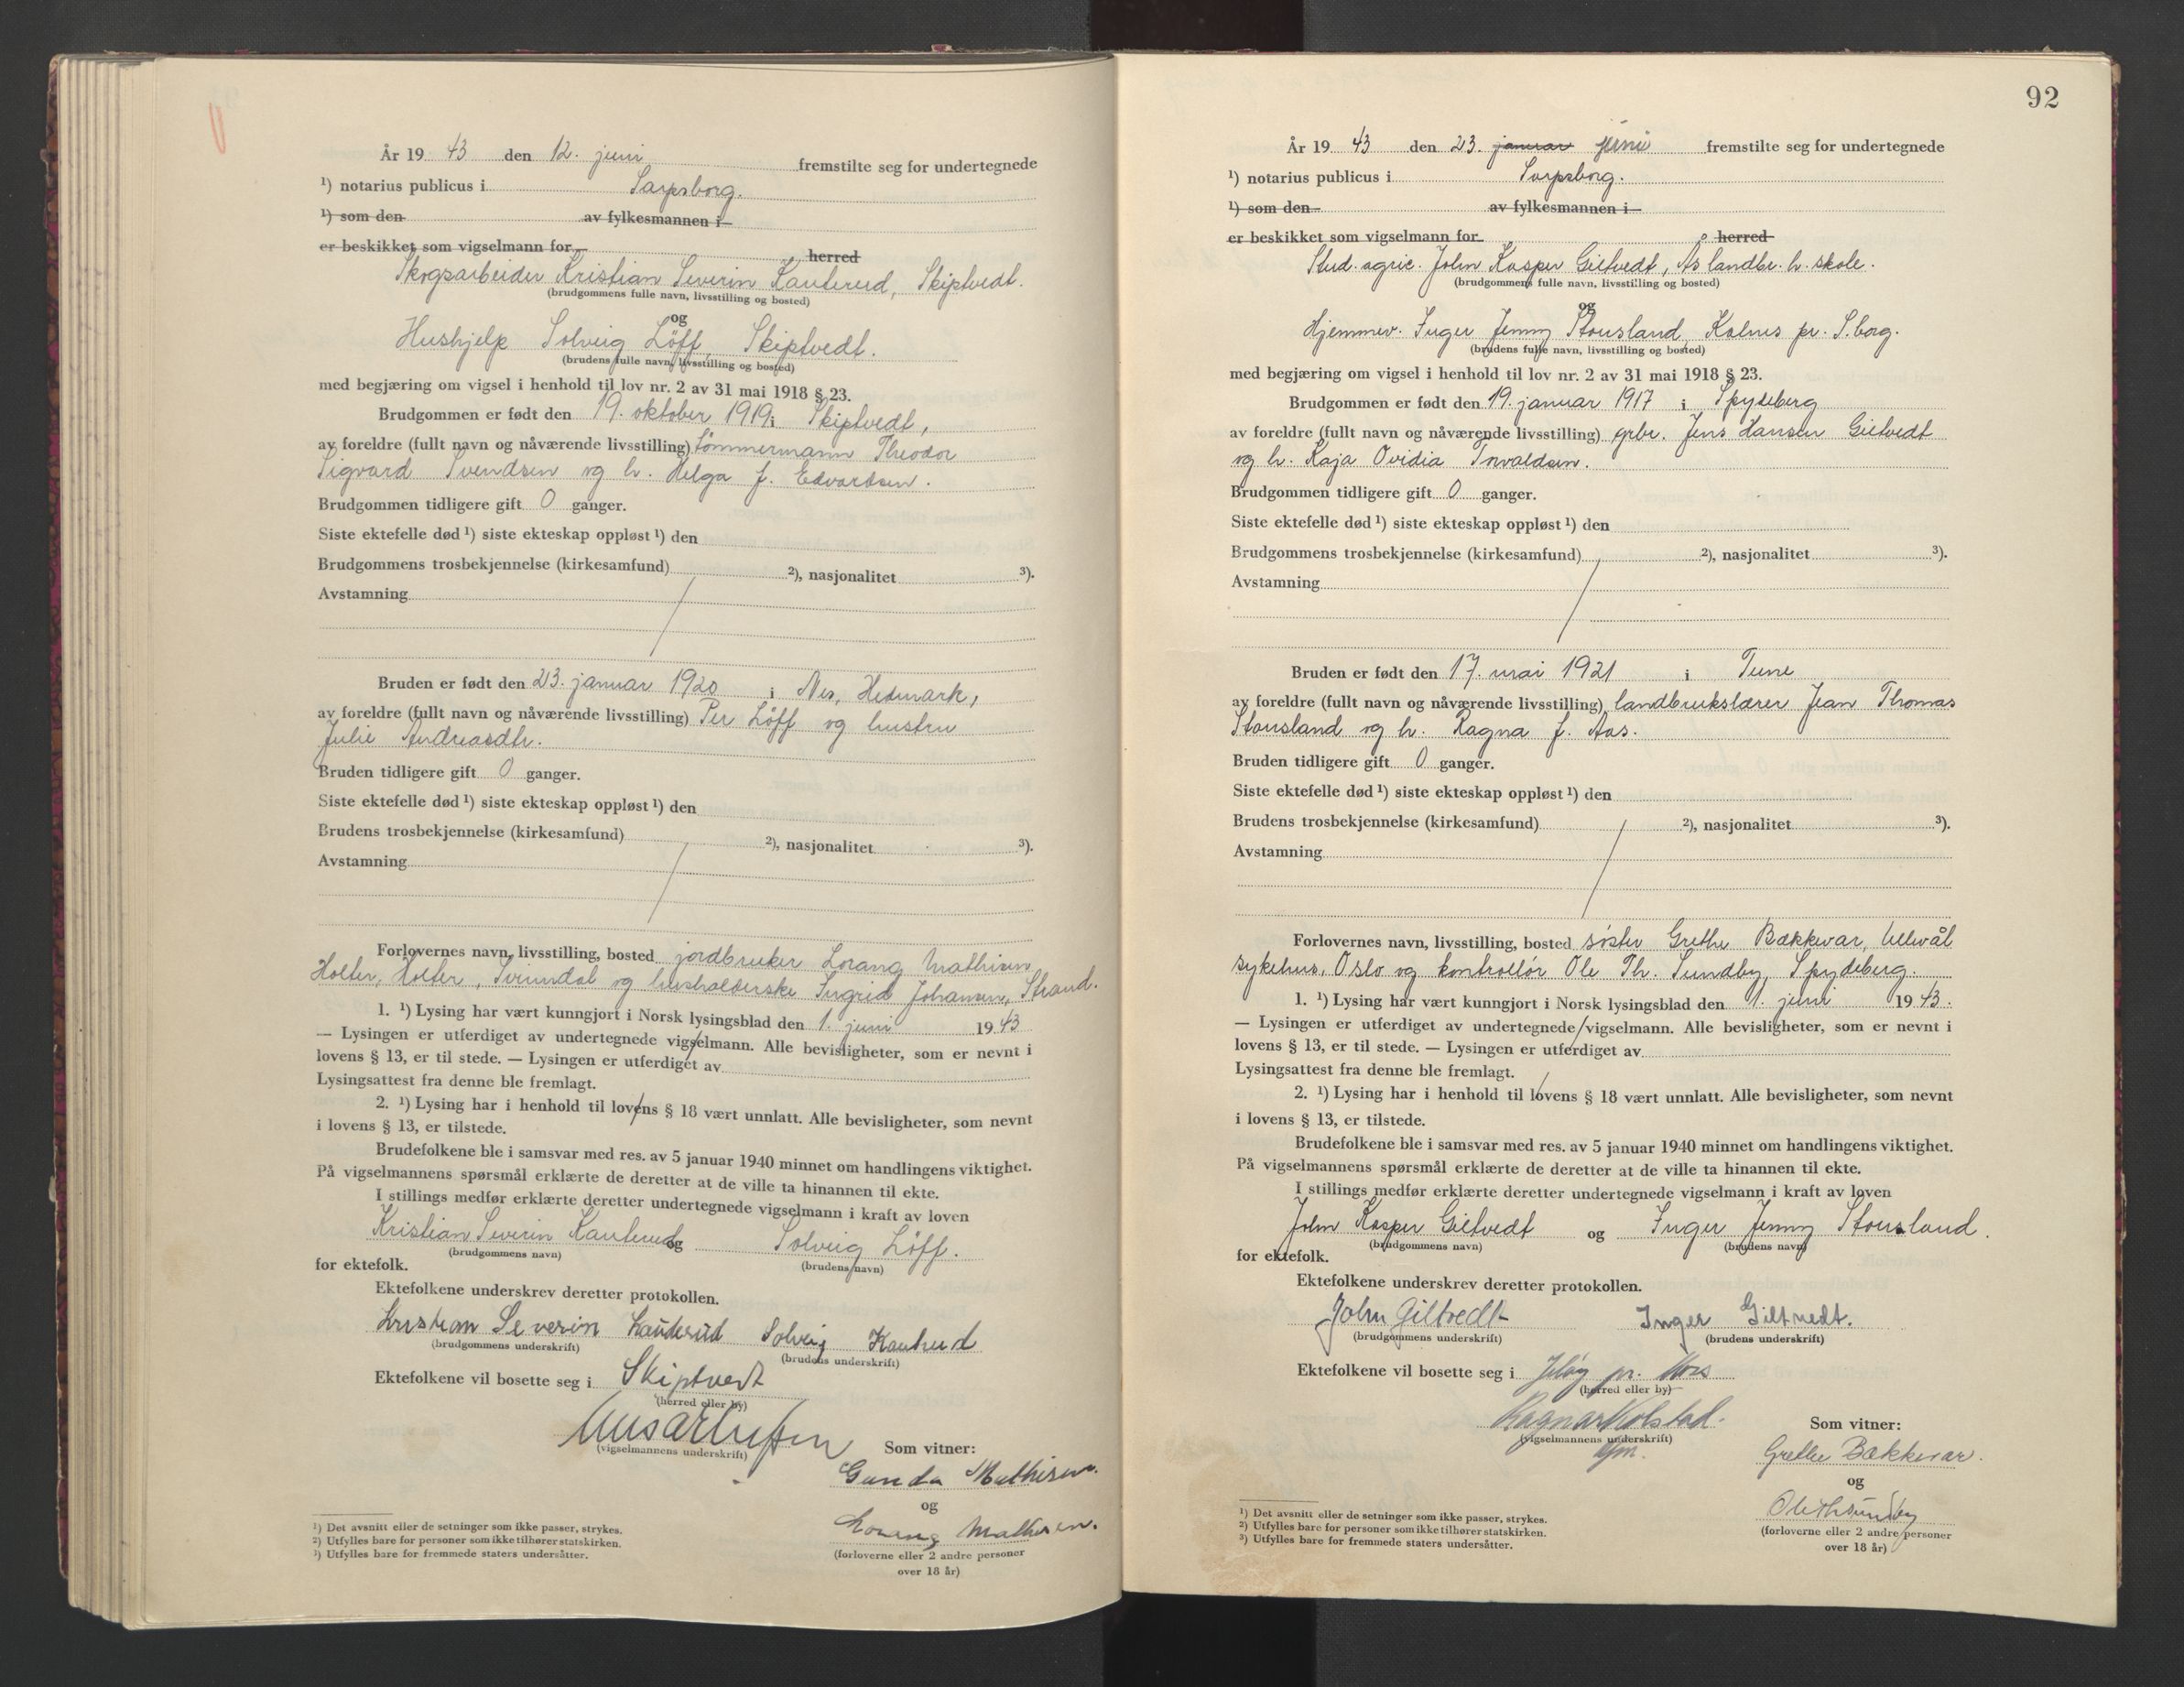 År 19 43 den 12. juni fremstilte seg for undertegnede
¹) notarius publicus i Sarpsborg.
¹) som den av fylkesmannen i
er beskikket som vigselmann for herred
Skogsarbeider Kristian Severin Kauterud, Skiptvedt.
(brudgommens fulle navn, livsstilling og bosted)
og
Hushjelp Solveig Löff, Skiptvedt.
(brudens fulle navn, livsstilling og bosted)
med begjæring om vigsel i henhold til lov nr. 2 av 31 mai 1918 § 23.
Brudgommen er født den 19. oktober 1919 i Skiptvedt,
av foreldre (fullt navn og nåværende livsstilling) tömmermann Theodor
Sigvard Svendsen og h. Helga f. Edvardsen.
Brudgommen tidligere gift 0 ganger.
Siste ektefelle død ¹) siste ekteskap oppløst ¹) den
Brudgommens trosbekjennelse (kirkesamfund) ²), nasjonalitet ³).
Avstamning
Bruden er født den 23. januar 1920 i Nes, Hedmark,
av foreldre (fullt navn og nåværende livsstilling) Per Löff og hustru
Julie Andreasdtr.
Bruden tidligere gift 0 ganger.
Siste ektefelle død ¹) siste ekteskap oppløst ¹) den
Brudens trosbekjennelse (kirkesamfund) ²), nasjonalitet ³).
Avstamning
Forlovernes navn, livsstilling, bosted jordbruker Lorang Mathisen
Holter, Holter, Svinndal og husholderske Ingrid Johansen, Strand.
1. ¹) Lysing har vært kunngjort i Norsk lysingsblad den 1. juni 19 43
— Lysingen er utferdiget av undertegnede vigselmann. Alle bevisligheter, som er nevnt i
lovens § 13, er til stede. — Lysingen er utferdiget av
Lysingsattest fra denne ble fremlagt.
2. ¹) Lysing har i henhold til lovens § 18 vært unnlatt. Alle bevisligheter, som nevnt
i lovens § 13, er tilstede.
Brudefolkene ble i samsvar med res. av 5 januar 1940 minnet om handlingens viktighet.
På vigselmannens spørsmål erklærte de deretter at de ville ta hinannen til ekte.
I stillings medfør erklærte deretter undertegnede vigselmann i kraft av loven
Kristian Severin Kauterud og Solveig Löff.
(brudgommens navn) (brudens navn)
for ektefolk.
Ektefolkene underskrev deretter protokollen.
Kristian Severin Kauterud Solveig Kauterud
(brudgommens underskrift) (brudens underskrift)
Ektefolkene vil bosette seg i Skiptvedt
(herred eller by)
(vigselmannens underskrift) Som vitner:
Gunda Mathisen.
og
Lorang Mathisen.
(forloverne eller 2 andre personer
over 18 år)
¹) Det avsnitt eller de setninger som ikke passer, strykes.
²) Utfylles bare for personer som ikke tilhører statskirken.
³) Utfylles bare for fremmede staters undersåtter.
92
År 19 43 den 23. januar juni fremstilte seg for undertegnede
¹) notarius publicus i Sarpsborg.
¹) som den av fylkesmannen i
er beskikket som vigselmann for herred
Stud. agric. John Kasper Giltvedt, Ås landbr. h. skole.
(brudgommens fulle navn, livsstilling og bosted)
og
Hjemmev. Inger Jenny Stousland, Kalnes pr. S.borg.
(brudens fulle navn, livsstilling og bosted)
med begjæring om vigsel i henhold til lov nr. 2 av 31 mai 1918 § 23.
Brudgommen er født den 19. januar 1917 i Spydeberg
av foreldre (fullt navn og nåværende livsstilling) grbr. Jens Hansen Giltvedt
og h. Kaja Ovidia Torvaldsen.
Brudgommen tidligere gift 0 ganger.
Siste ektefelle død ¹) siste ekteskap oppløst ¹) den
Brudgommens trosbekjennelse (kirkesamfund) ²), nasjonalitet ³).
Avstamning
Bruden er født den 17. mai 1921 i Tune
av foreldre (fullt navn og nåværende livsstilling) landbrukslærer Jean Thomas
Stousland og h. Ragna f. Aas.
Bruden tidligere gift 0 ganger.
Siste ektefelle død ¹) siste ekteskap oppløst ¹) den
Brudens trosbekjennelse (kirkesamfund) ²), nasjonalitet ³).
Avstamning
Forlovernes navn, livsstilling, bosted söster Grethe Bækkevar, Ullevål
sykehus, Oslo og kontrollör Ole Th. Sundby, Spydeberg.
1. ¹) Lysing har vært kunngjort i Norsk lysingsblad den 1. juni 19 43.
— Lysingen er utferdiget av undertegnede vigselmann. Alle bevisligheter, som er nevnt i
lovens § 13, er til stede. — Lysingen er utferdiget av
Lysingsattest fra denne ble fremlagt.
2. ¹) Lysing har i henhold til lovens § 18 vært unnlatt. Alle bevisligheter, som nevnt
i lovens § 13, er tilstede.
Brudefolkene ble i samsvar med res. av 5 januar 1940 minnet om handlingens viktighet.
På vigselmannens spørsmål erklærte de deretter at de ville ta hinannen til ekte.
I stillings medfør erklærte deretter undertegnede vigselmann i kraft av loven
John Kasper Giltvedt og Inger Jenny Stousland.
(brudgommens navn) (brudens navn)
for ektefolk.
Ektefolkene underskrev deretter protokollen.
John Giltvedt Inger Giltvedt.
(brudgommens underskrift) (brudens underskrift)
Ektefolkene vil bosette seg i Jeløy pr. Moss
(herred eller by)
Ragnar Kolstad.
(vigselmannens underskrift) Som vitner:
Grethe Bækkevar.
og
Ole Th Sundby
(forloverne eller 2 andre personer
over 18 år)
¹) Det avsnitt eller de setninger som ikke passer, strykes.
²) Utfylles bare for personer som ikke tilhører statskirken.
³) Utfylles bare for fremmede staters undersåtter.